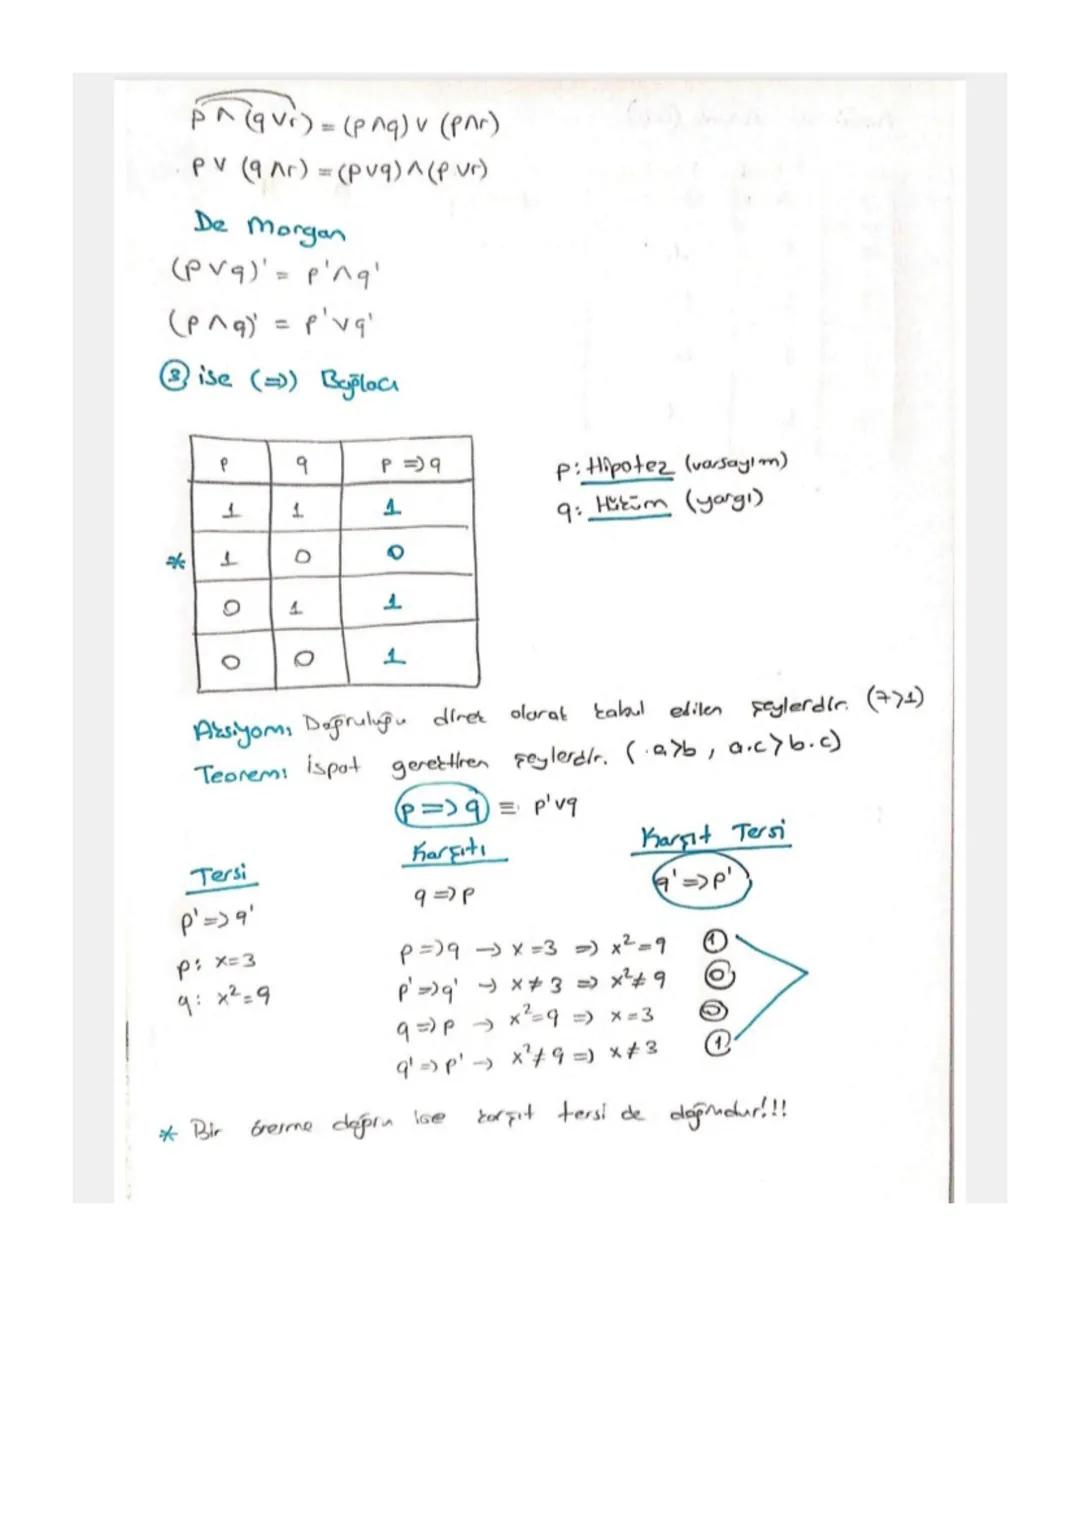 p ∧ (q ∨ r) = (p ∧ q) ∨ (p ∧ r)
p ∨ (q ∧ r) = (p ∨ q) ∧ (p ∨ r)
De Morgan
(p ∨ q)' = p' ∧ q'
(p ∧ q)' = p' ∨ q'
③ ise (⇒) Bağlacı
p q p ⇒ q
1 1 1
* 1 0 0
0 1 1
0 0 1
p: Hipotez (varsayım)
q: Hüküm (yargı)
Aksiyom: Doğruluğu direk olarak kabul edilen şeylerdir. (7>1)
Teorem: ispat gerektiren şeylerdir. (a>b, a.c>b.c)
p ⇒ q ≡ p' ∨ q
Tersi
p' ⇒ q'
p: x=3
q: x²=9
Karşıtı
q ⇒ p
Karşıt Tersi
q' ⇒ p'
p ⇒ q → x=3 ⇒ x²=9 ①
p' ⇒ q' → x≠3 ⇒ x²≠9 ⓪
q ⇒ p → x²=9 ⇒ x=3 ⓪
q' ⇒ p' → x²≠9 ⇒ x≠3 ①
* Bir önerme doğru ise karşıt tersi de doğrudur!!!